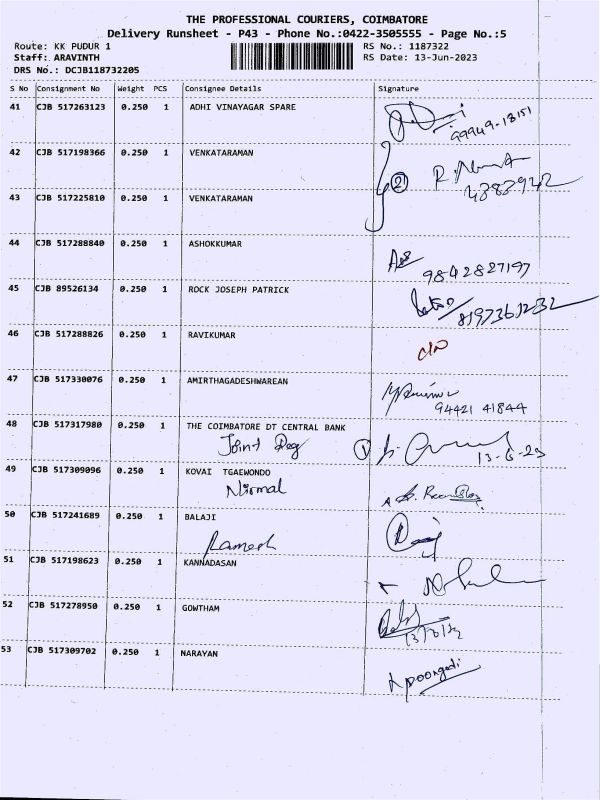 THE PROFESSIONAL COURIERS, COIMBATORE
Delivery Runsheet - P43 - Phone No.:0422-3505555 - Page No.:5
Route: KK PUDUR 1 RS No.: 1187322
Staff: ARAVINTH RS Date: 13-Jun-2023
DRS No.: DCJB118732205
S No Consignment No Weight PCS Consignee Details Signature
41 CJB 517263123 0.250 1 ADHI VINAYAGAR SPARE
99949-13151
42 CJB 517198366 0.250 1 VENKATARAMAN
21
43 CJB 517225810 0.250 1 VENKATARAMAN
44 CJB 517288840 0.250 1 ASHOKKUMAR
9842827197
45 CJB 89526134 0.250 1 ROCK JOSEPH PATRICK
46 CJB 517288826 0.250 1 RAVIKUMAR
47 CJB 517330076 0.250 1 AMIRTHAGADESHWAREAN
94421 41844
48 CJB 517317980 0.250 1 THE COIMBATORE DT CENTRAL BANK
Joint Reg 13-6-23
49 CJB 517309096 0.250 1 KOVAI TGAEWONDO
Nirmal
50 CJB 517241689 0.250 1 BALAJI
Ramesh
51 CJB 517198623 0.250 1 KANNADASAN
52 CJB 517278950 0.250 1 GOWTHAM
53 CJB 517309702 0.250 1 NARAYAN